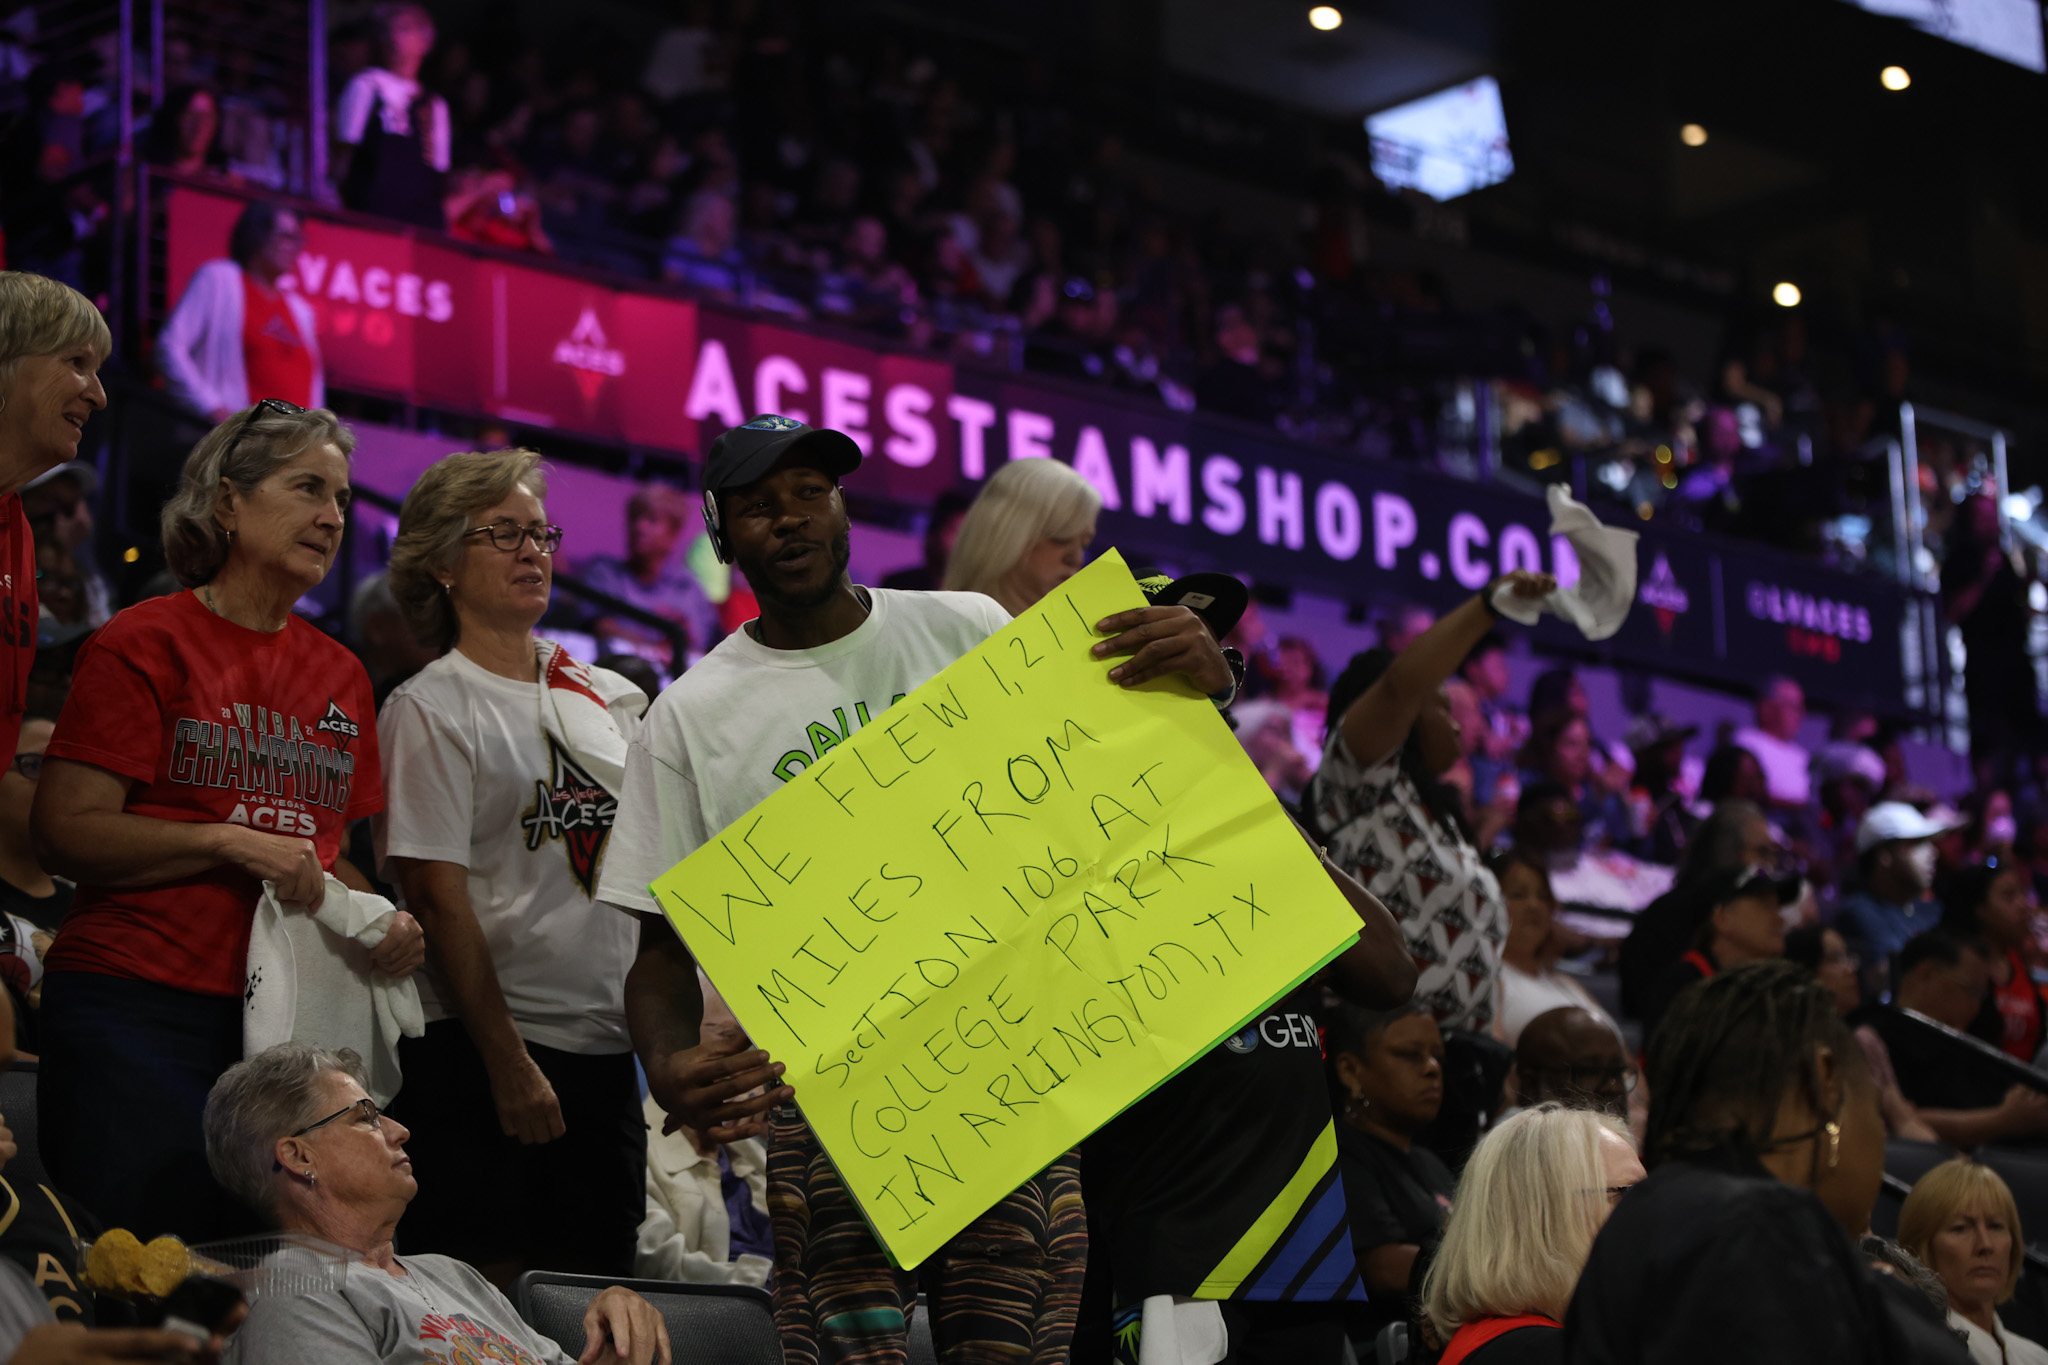 LVACES
ACES
ACESTEAMSHOP.COM
ACES
@LVACES
20 WNBA 22
CHAMPIONS
LAS VEGAS
ACES
ACES
LAS VEGAS
ACES
LV
DALLA
WE FLEW 1,211
MILES FROM
SECTION 106 AT
COLLEGE PARK
IN ARLINGTON, TX
GEM